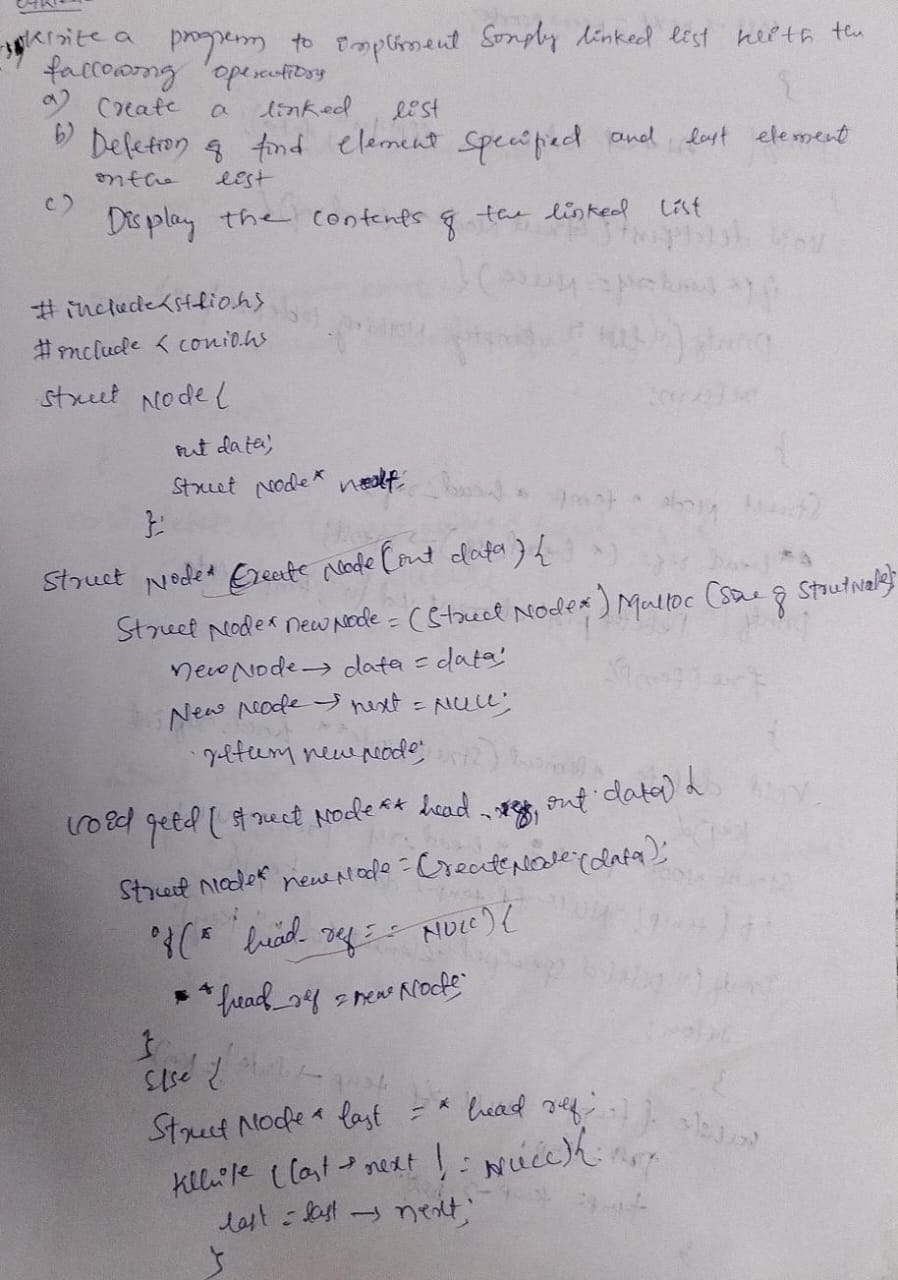 Write a program to impliment Simply linked list with the
following operations
a) Create a linked list
b) Deletion of find element specified and last element
on the list
c) Display the contents of the linked list
#include<stdio.h>
#include <conio.h>
Struct Node {
int data;
Struct Node* next;
};
Struct Node* Create Node (int data) {
Struct Node* newNode = (Struct Node*) Malloc (Size of Struct Node);
newNode → data = data;
New Node → next = NULL;
return newNode;
void getd ( struct Node** head_ref, int data) {
Struct Node* newNode = CreateNode (data);
if (* head_ref == NULL) {
*head_ref = newNode;
}
Else {
Struct Node* last = * head ref;
While (last → next != NULL) {
last = last → next;
}